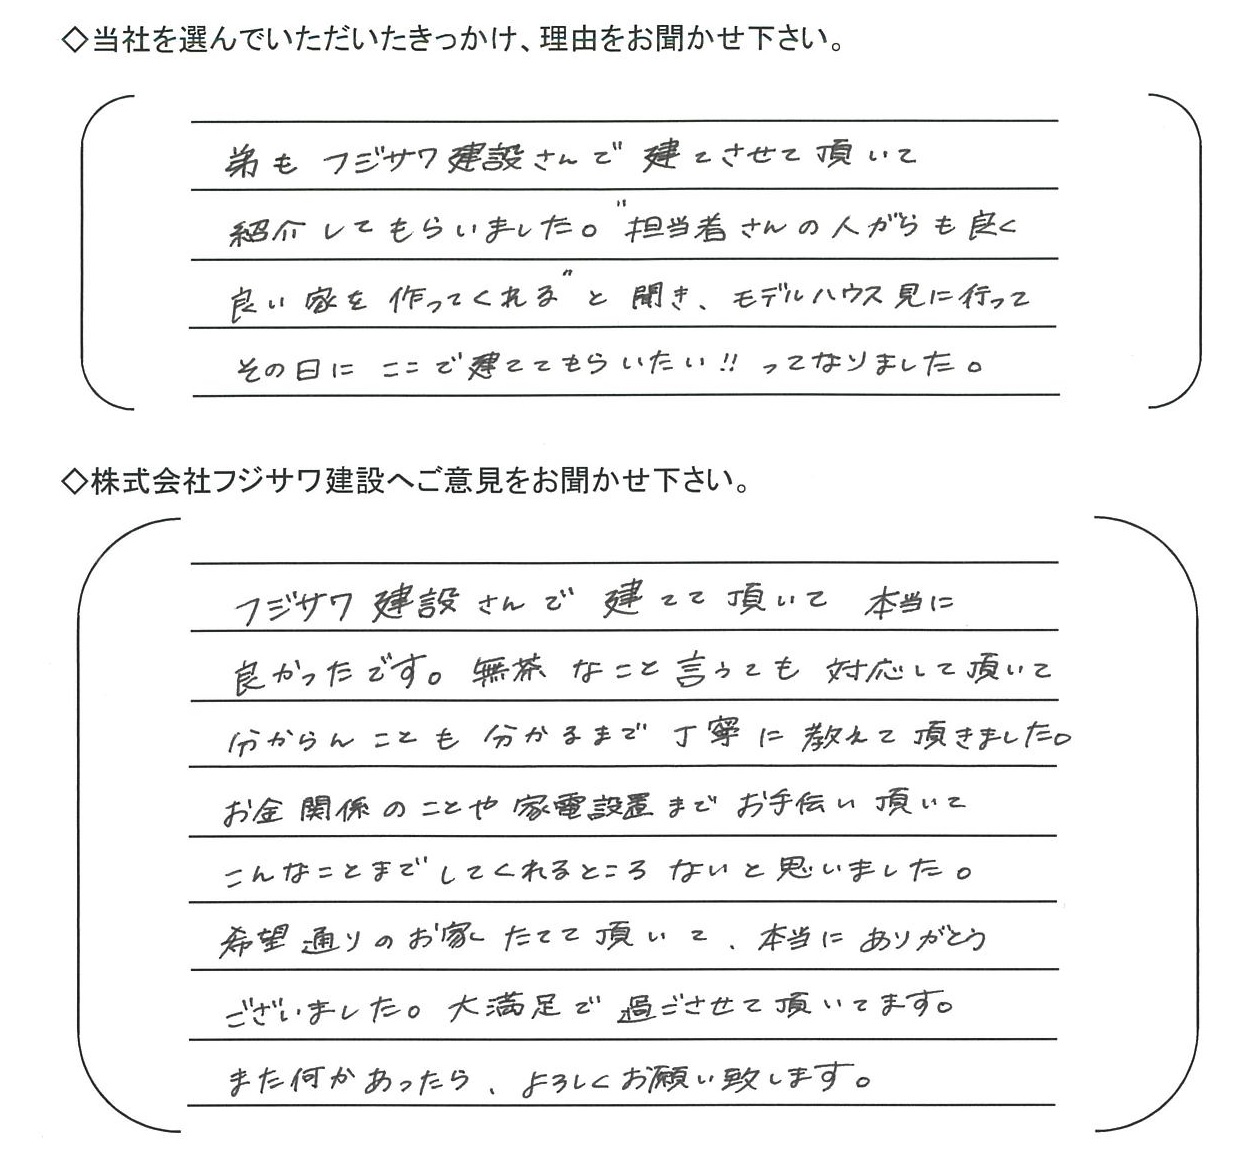 ◇当社を選んでいただいたきっかけ、理由をお聞かせ下さい。
弟も フジサワ建設さんで 建てさせて頂いて
紹介してもらいました。〝担当者さんの人がらも良く
良い家を作ってくれる〟と聞き、モデルハウス見に行って
その日に ここで建ててもらいたい!! ってなりました。
◇株式会社フジサワ建設へご意見をお聞かせ下さい。
フジサワ建設さんで 建てて頂いて 本当に
良かったです。無茶なこと言うても 対応して頂いて
分からんことも 分かるまで 丁寧に 教えて頂きました。
お金関係のことや 家電設置まで お手伝い頂いて
こんなことまでしてくれるところ ないと思いました。
希望通りのお家 たてて頂いて、本当に ありがとう
ございました。大満足で 過ごさせて頂いてます。
また何かあったら、よろしくお願い致します。